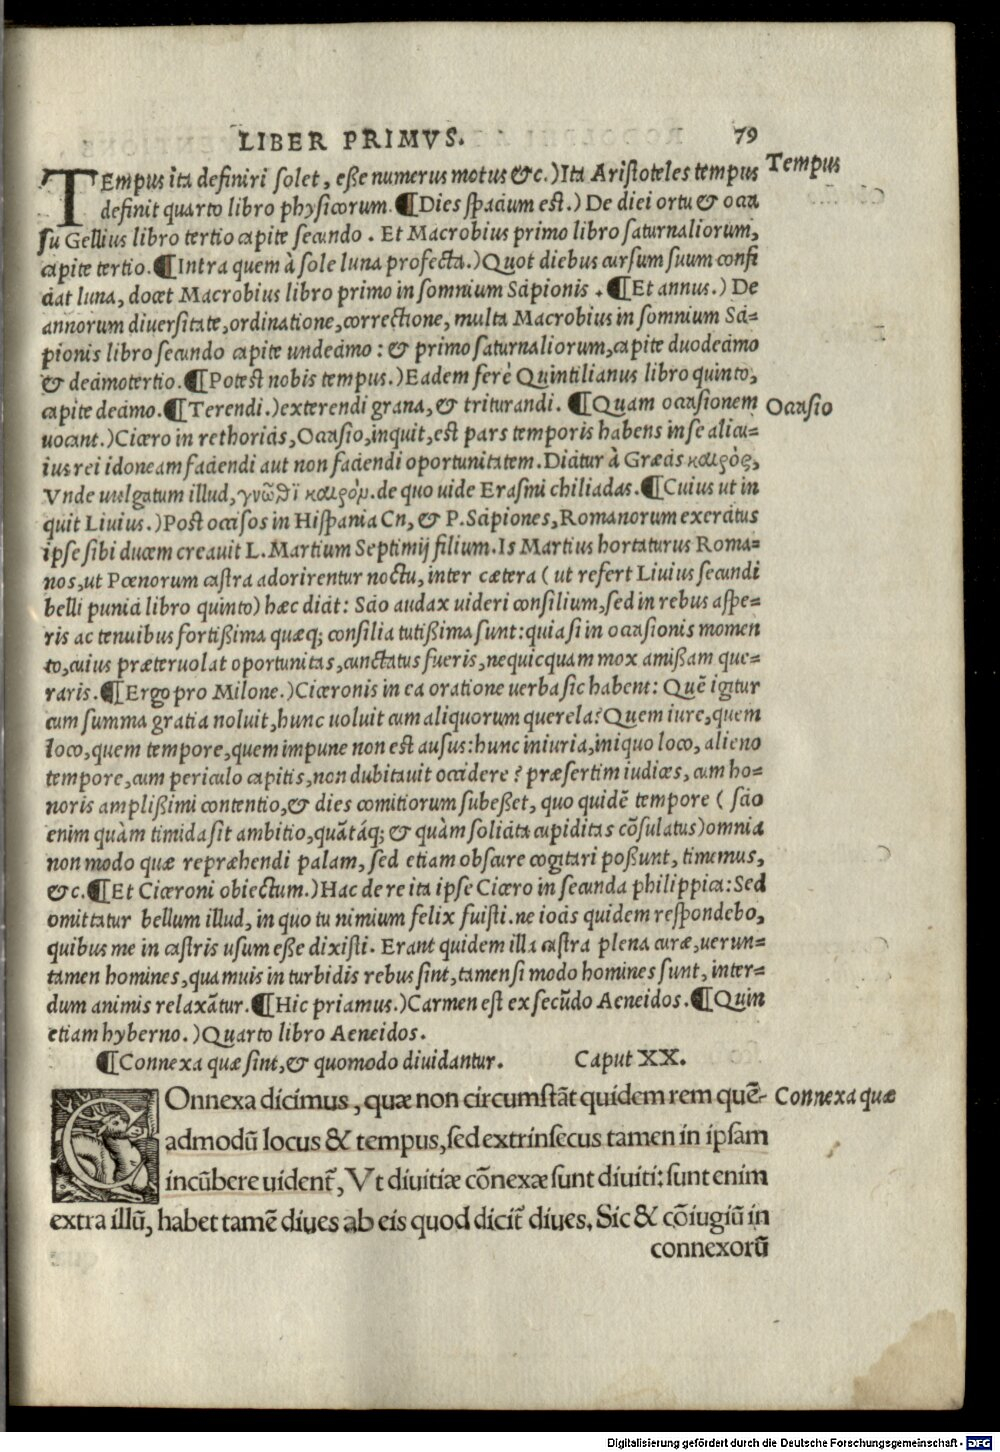 LIBER PRIMVS. 79
TEmpus ita definiri solet, eße numerus motus &c.) Ita Aristoteles tempus
Tempus
definit quarto libro physicorum. ¶Dies spacium est.) De diei ortu & occa
su Gellius libro tertio capite secundo. Et Macrobius primo libro saturnaliorum,
capite tertio. ¶Intra quem à sole luna profecta.) Quot diebus cursum suum confi
ciat luna, docet Macrobius libro primo in somnium Scipionis. ¶Et annus.) De
annorum diuersitate, ordinatione, correctione, multa Macrobius in somnium Sci=
pionis libro secundo capite undecimo: & primo saturnaliorum, capite duodecimo
& decimotertio. ¶Potest nobis tempus.) Eadem ferè Quintilianus libro quinto,
capite decimo. ¶Terendi.) exterendi grana, & triturandi. ¶Quam occasionem
Occasio
uocant.) Cicero in rethoricis, Occasio, inquit, est pars temporis habens in se alicu=
ius rei idoneam faciendi aut non faciendi oportunitatem. Dicitur à Græcis καιρὸς,
Vnde uulgatum illud, γνῶθι καιρόν. de quo uide Erasmi chiliadas. ¶Cuius ut in
quit Liuius.) Post occisos in Hispania Cn, & P. Scipiones, Romanorum exercitus
ipse sibi ducem creauit L. Martium Septimij filium. Is Martius hortaturus Roma=
nos, ut Pœnorum castra adorirentur noctu, inter cætera ( ut refert Liuius secundi
belli punici libro quinto) hæc dicit: Scio audax uideri consilium, sed in rebus aspe=
ris ac tenuibus fortißima quæq; consilia tutißima sunt: quia si in occasionis momen
to, cuius præteruolat oportunitas, cunctatus fueris, nequicquam mox amißam que=
raris. ¶Ergo pro Milone.) Ciceronis in ea oratione uerba sic habent: Quē igitur
cum summa gratia noluit, hunc uoluit cum aliquorum querela? Quem iure, quem
loco, quem tempore, quem impune non est ausus: hunc iniuria, iniquo loco, alieno
tempore, cum periculo capitis, non dubitauit occidere? præsertim iudices, cum ho=
noris amplißimi contentio, & dies comitiorum subeßet, quo quidē tempore ( scio
enim quàm timida sit ambitio, quātáq; & quàm solicita cupiditas cōsulatus) omnia
non modo quæ repræhendi palam, sed etiam obscure cogitari poßunt, timemus,
&c. ¶Et Ciceroni obiectum.) Hac de re ita ipse Cicero in secunda philippica: Sed
omittatur bellum illud, in quo tu nimium felix fuisti. ne iocis quidem respondebo,
quibus me in castris usum eße dixisti. Erant quidem illa castra plena curæ, uerun=
tamen homines, quamuis in turbidis rebus sint, tamen si modo homines sunt, inter=
dum animis relaxātur. ¶Hic priamus.) Carmen est ex secūdo Aeneidos. ¶Quin
etiam hyberno.) Quarto libro Aeneidos.
¶Connexa quæ sint, & quomodo diuidantur. Caput XX.
COnnexa dicimus, quæ non circumstāt quidem rem quē-
Connexa quæ
admodū locus & tempus, sed extrinsecus tamen in ipsam
incūbere uident̃, Vt diuitiæ cōnexæ sunt diuiti: sunt enim
extra illū, habet tamē diues ab eis quod dicit̃ diues. Sic & cōiugiū in
connexorū
Digitalisierung gefördert durch die Deutsche Forschungsgemeinschaft - DFG